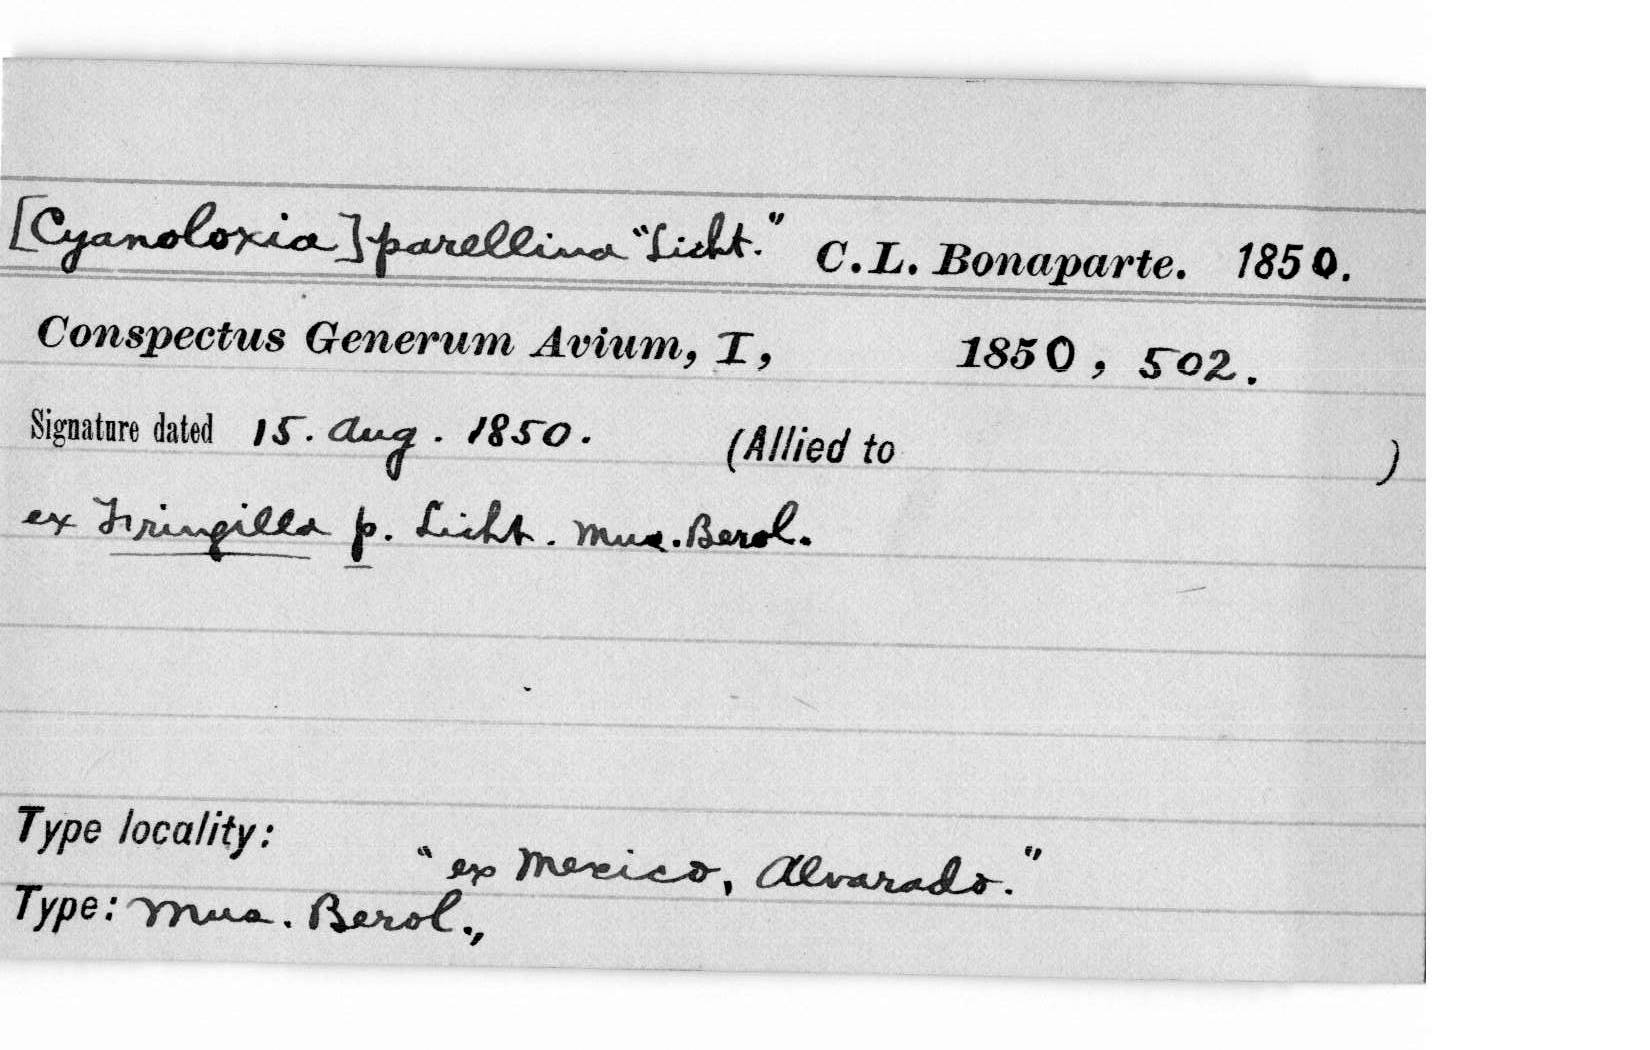 [Cyanoloxia] parellina "Licht." C.L. Bonaparte. 1850.
Conspectus Generum Avium, I, 1850, 502.
Signature dated 15. Aug. 1850. (Allied to )
ex Fringilla p. Licht. Mus. Berol.
Type locality: "ex Mexico, Alvarado."
Type: Mus. Berol.,